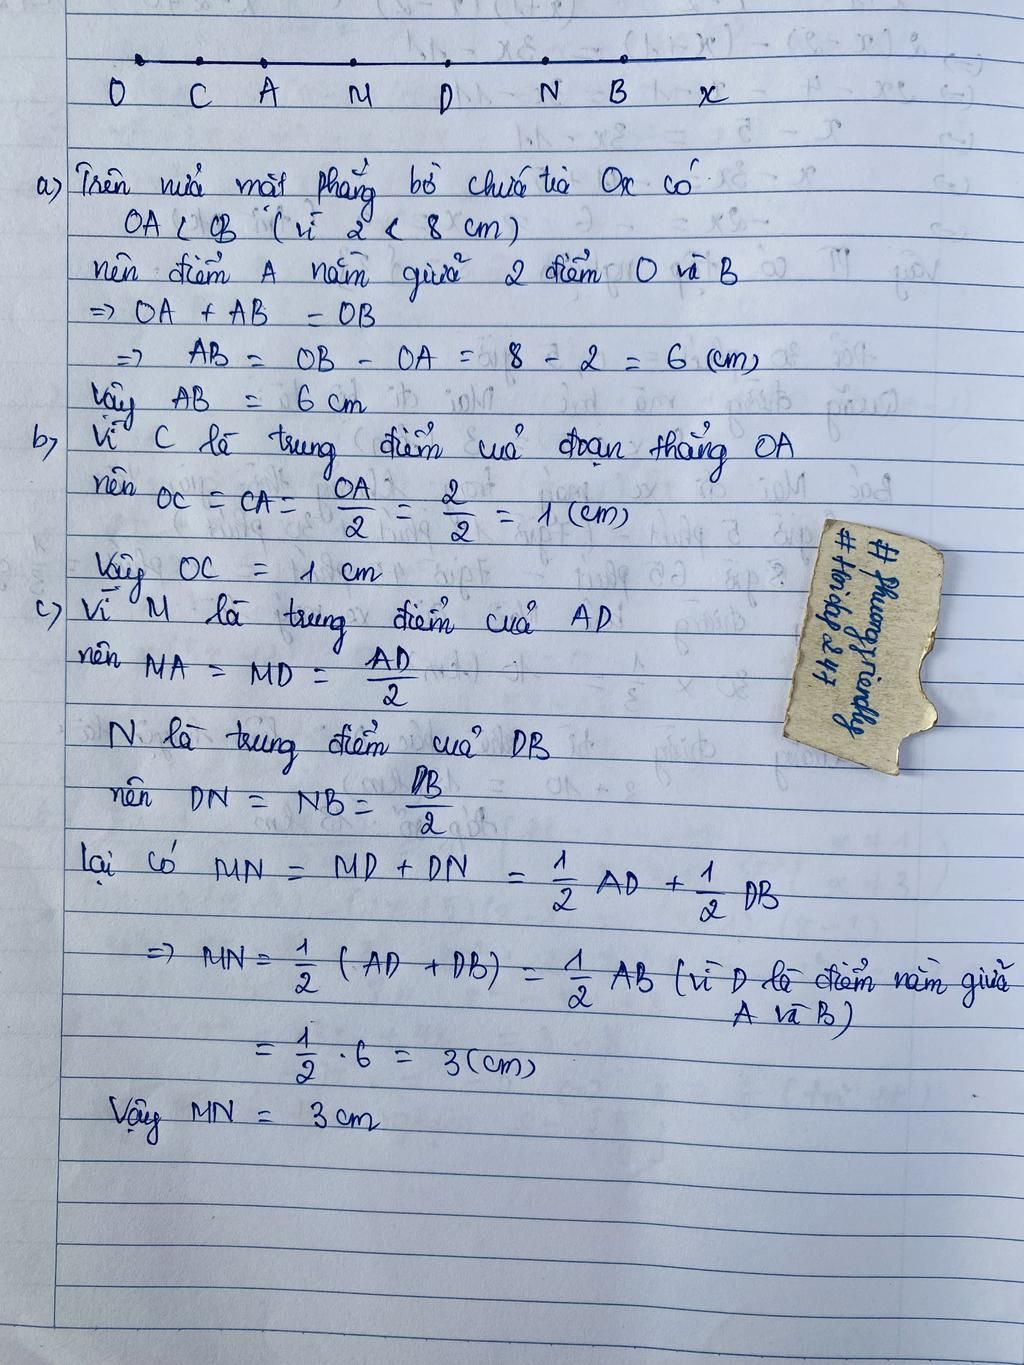 O C A M D N B x
a) Trên nửa mặt phẳng bờ chứa tia Ox có
OA < OB (vì 2 < 8 cm)
nên điểm A nằm giữa 2 điểm O và B
=> OA + AB = OB
=> AB = OB - OA = 8 - 2 = 6 (cm)
Vậy AB = 6 cm
b) Vì C là trung điểm của đoạn thẳng OA
nên OC = CA = OA/2 = 2/2 = 1 (cm)
Vậy OC = 1 cm
c) Vì M là trung điểm của AD
nên MA = MD = AD/2
N là trung điểm của DB
nên DN = NB = DB/2
Lại có MN = MD + DN = 1/2 AD + 1/2 DB
=> MN = 1/2 (AD + DB) = 1/2 AB (vì D là điểm nằm giữa
A và B)
= 1/2 . 6 = 3 (cm)
Vậy MN = 3 cm
# Hoidap247